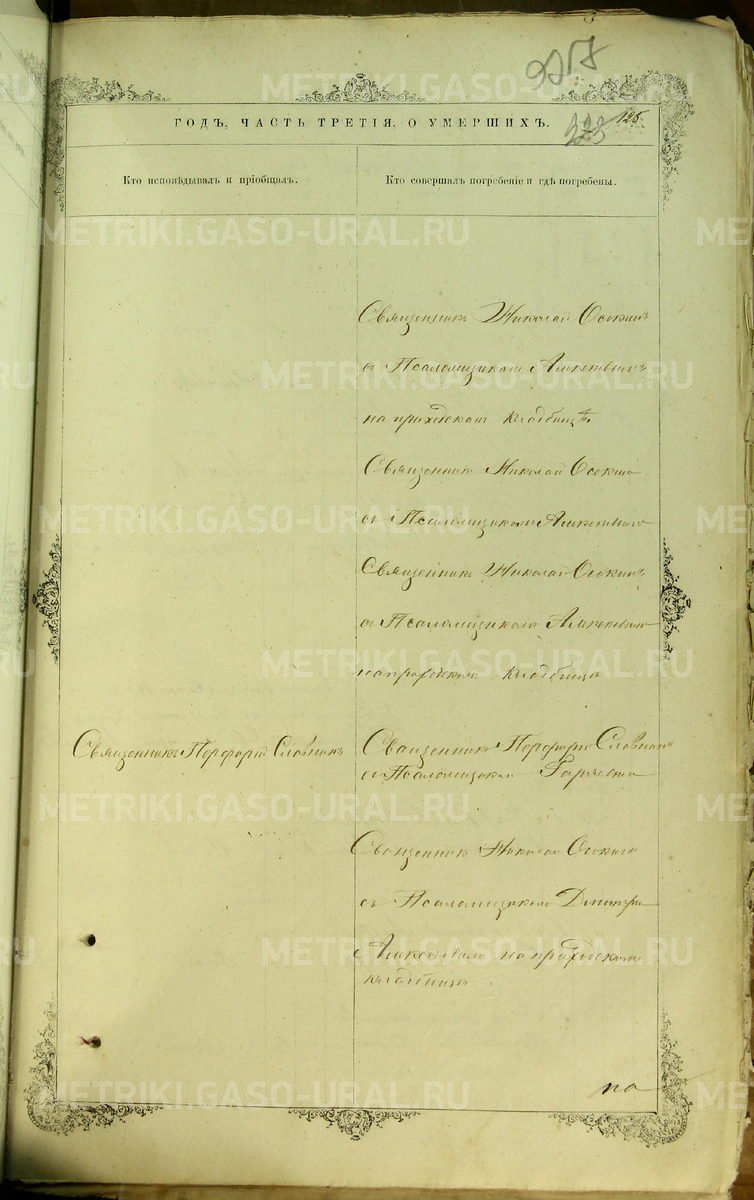 125.
ГОДЪ, ЧАСТЬ ТРЕТІЯ, О УМЕРШИХЪ.
Кто исповѣдывалъ и пріобщалъ.
Кто совершалъ погребеніе и гдѣ погребены.
Священникъ Николай Осокинъ
съ Псаломщикомъ
на приходскомъ кладбищѣ.
Священникъ Николай Осокинъ
съ Псаломщикомъ
Священникъ Николай Осокинъ
съ Псаломщикомъ
на приходскомъ кладбищѣ
Священникъ Порфирій Словцовъ
Священникъ Порфирій Словцовъ
съ Псаломщикомъ
Священникъ Николай Осокинъ
съ Псаломщикомъ Дмитріемъ
на приходскомъ
кладбищѣ.
по
METRIKI.GASO-URAL.RU